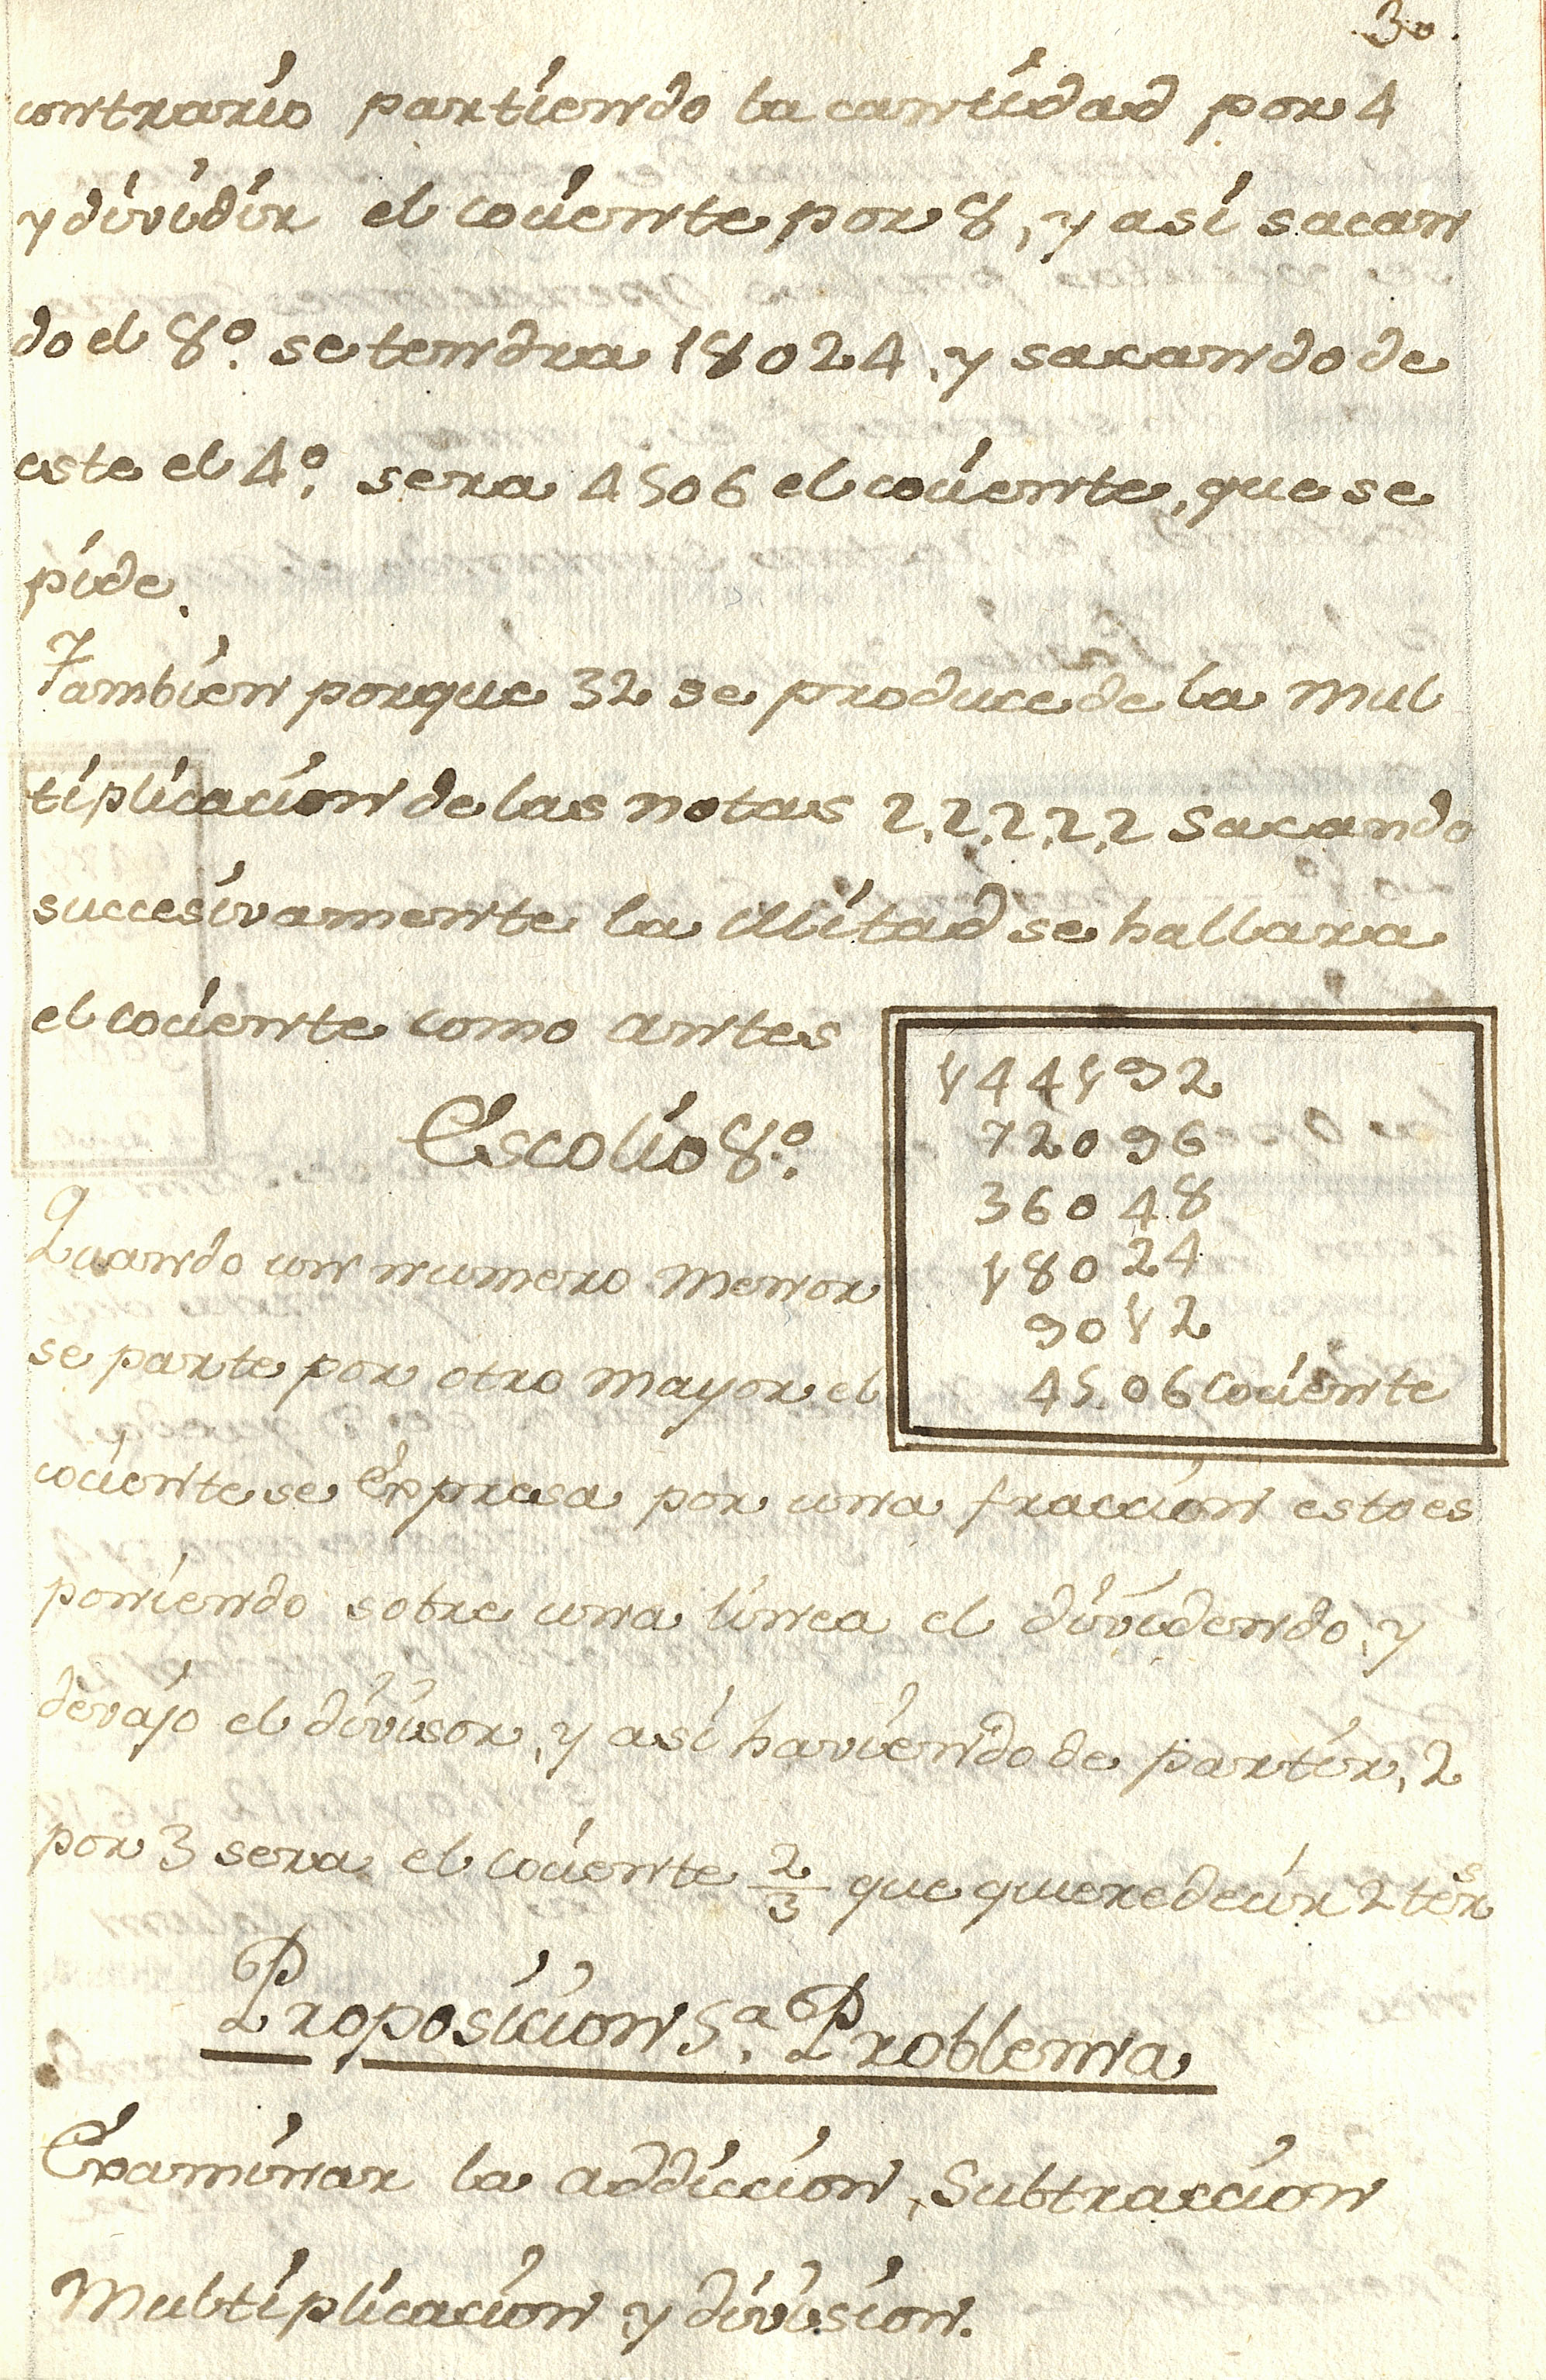 30.
contrario partiendo la cantidad por 4
y dividir el cociente por 8, y asi sacan
do el 8º. se tendra 18024, y sacando de
este el 4º. sera 4506 el cociente, que se
pide.
Tambien porque 32 se produce de la Mul
tiplicacion de las notas 2,2,2,2,2 sacando
succesivamente la Mitad se hallara
el cociente como antes
144192
72096
36048
18024
9012
4506 cociente
Escolio 8º.
Quando un numero menor
se parte por otro mayor el
cociente se Expresa por una fraccion esto es
poniendo sobre una linea el dividendo, y
devajo el divisor, y asi haviendo de partir, 2
por 3 sera el cociente 2/3 que quiere decir 2 terˢ
Proposicion 5ª. Problema
Examinar la addiccion, Subtraccion
Multiplicacion, y division.